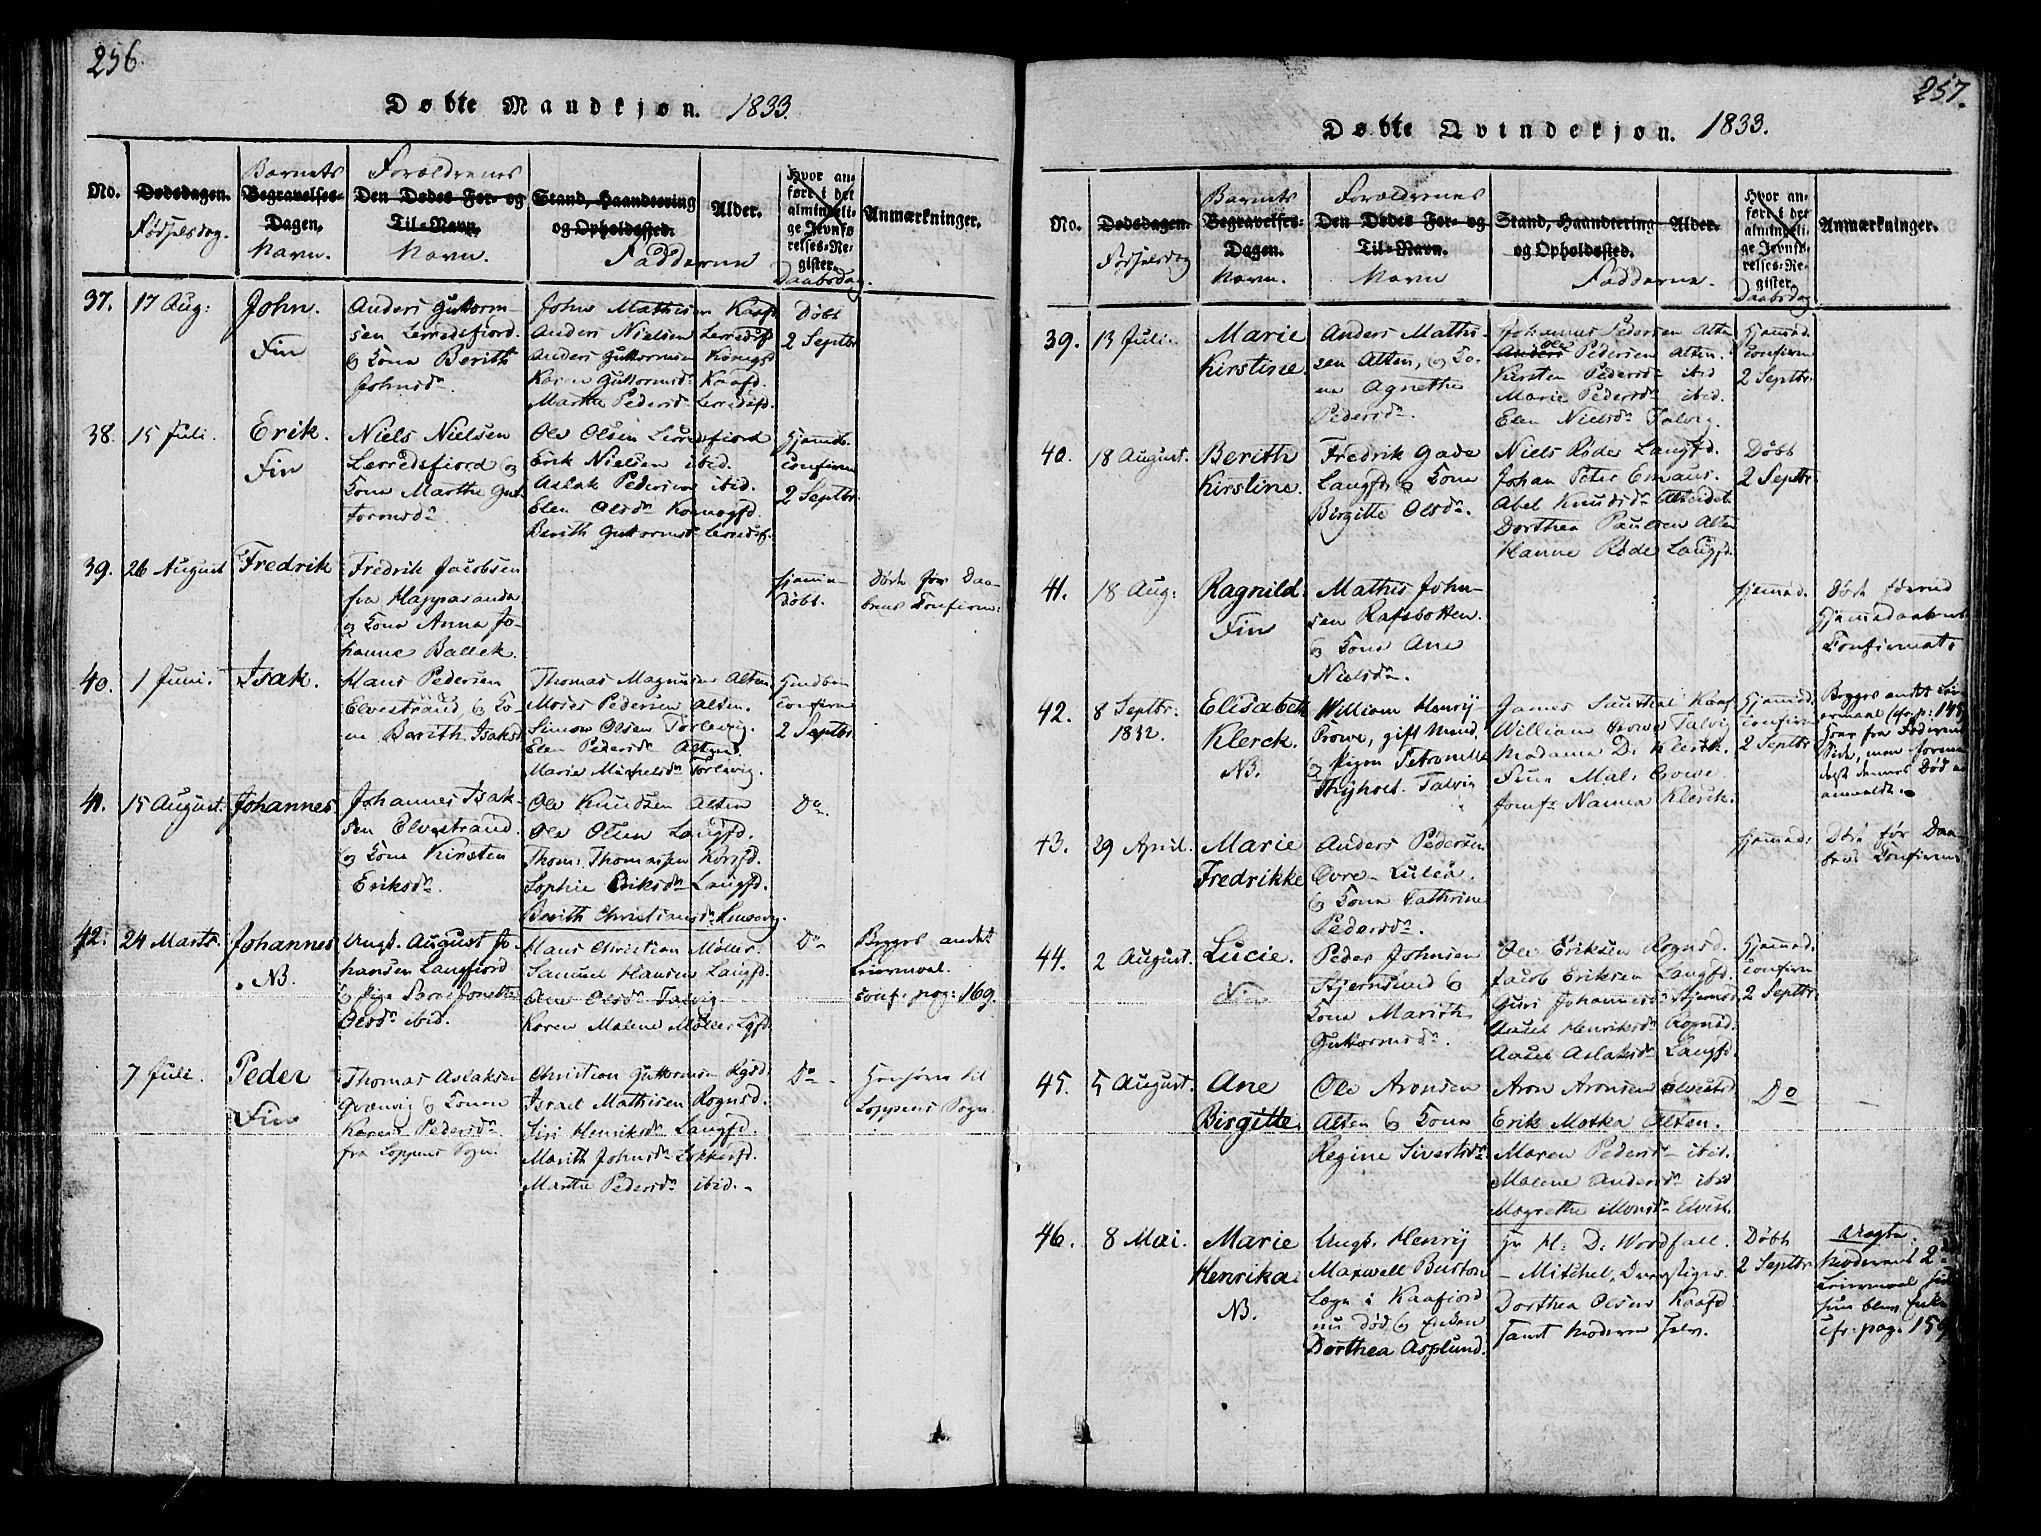 256.
Døbte Mandkjøn. 1833.
No.
Dødsdagen.
Fødselsdag.
Barnets
Begravelses-
Dagen.
Navn.
Forældrenes
Den Dødes For- og
Til-Navn.
Navn.
Stand, Haandtering
og Opholdssted.
Fadderne
Alder.
Hvor an-
ført i det
almindeli-
ge Jevnfø-
relses-Re-
gister.
Daabsdag.
Anmærkninger.
37.
17 Aug:
John.
Fin
Anders Guttorm-
sen Lerredsfiord.
og Kona Berith
Johnsdr.
John Mathisen Kaafd
Anders Nielsen Lerredsf
Anders Guttormsen Korsgfd
Karen Guttormsdr Kaafd.
Marthe Pedersdr Lerredsfd.
Døbt
2 Septbr
38.
15 Juli.
Erik.
Fin
Niels Nielsen
Lerredsfiord og
Kona Marthe Gut-
tormsdr
Ole Olsen Lerredsfiord
Erik Nielsen ibid.
Aslak Pedersen ibid.
Elen Olsdr Komagfd.
Berith Guttormsdr Lerredsf.
Hjemdb.
confirm
2 Septbr
39.
26 August
Fredrik
Fredrik Jacobsen
fra Happaranda
og Kona Anna Jo-
hanne Ballek.
Hjemme-
døbt.
Døde før Daa-
bens Confirm:
40.
1 Juni.
Isak.
Hans Pedersen
Elvestrand, og Ko-
na Berith Isaksdr
Thomas Magnusen Alten
Moses Pedersen Alten.
Simon Olsen Torlevig.
Elen Pedersdr Alten
Marie Michelsdr Torlevig.
confirm
2 Septbr
41.
15 August.
Johannes
Johannes Isak-
sen Elvestrand.
og Kona Kirsten
Eriksdr.
Ole Knudsen Alten
Ole Olsen Langfd.
Thom: Thomassen Korsfd.
Sophie Eriksdr Langfd.
Berith Christiansdr
Do
42.
24 Marts.
Johannes
NB.
Ungk. August Jo-
hansen Langfiord
og Pige Sara Jonette
Olsdr ibid.
Hans Christian Møller
Samuel Hansen Langfd.
Ane Olsdr Talvig
Karen Malene Møller Lgfd.
Do
Begges andet
Leiermaal.
conf: pag: 169.
7 Juli.
Peder
Fin
Thomas Aslaksen
Qvænvig og Konen
Karen Pedersdr
fra Loppens Sogn.
Christian Guttormsen Rgsd.
Israel Mathisen Rognsd.
Siri Henriksdr Langfd.
Marith Johnsdr Lokkerfd.
Marthe Pedersdr ibid.
Do
Henhører til
Loppens Sogn.
257.
Døbte Qvindekjøn. 1833.
No.
Dødsdagen.
Fødselsdag
Barnets
Begravelses-
Dagen.
Navn.
Forældrenes
Den Dødes For- og
Til-Navn.
Navn
Stand, Haandtering
og Opholdssted.
Fadderne.
Alder.
Hvor an-
ført i det
almindeli-
ge Jevnfø-
relses-Re-
gister.
Daabsdag
Anmærkninger.
39.
13 Juli.
Marie
Kirstine.
Anders Mathi-
sen Alten, og Ko-
na Agnethe
Pedersdr.
Johannes Pedersen Alten
Ole
Anders Pedersen Alten.
Kirsten Pedersdr ibid
Marie Pedersdr ibid.
Elen Nielsdr Talvig.
Hjemmd.
confirm
2 Septbr.
40.
18 August.
Berith
Kirstine.
Fredrik Gade
Langfd. og Kona
Birgitte Olsdr.
Niels Røde Langfd.
Johan Peter Emaus.
Abel Knudsdr Alteidet
Dorthea Paulsen Alten
Hanne Røde Langfd.
Døbt
2 Septbr
41.
18 Aug:
Ragnild.
Fin
Mathis John-
sen Rafsbotten.
og Kona Ane
Nielsdr.
Hjemmd.
Døde forend
Hjemmedaabens
Confirmat:
42.
8 Septbr:
1832.
Elisabeth
Klerck.
NB.
William Henrij
Crowe, gift Mand,
og Pigen Petronelle
Thyholt. Talvig
William Crowe Talvig
Madame D. Klerck.
Jomfr Nanna Klerck.
Hjemmd.
confirm
2 Septbr
Begges andet Lei-
ermaal (cfr p: 145)
43.
29 April.
Marie
Fredrikke
Anders Pedersen
Øvre-Luleå.
og Kona Cathrine
Pedersdr.
Hjemmd:
Død før Daa-
bens Confirm.
44.
2 August.
Lucie.
Fin
Peder Johnsen
Stjernsund og
Kona Marith
Guttormsdr.
Ole Eriksen Rognsd.
Jacob Eriksen Langfd.
Guri Johannesdr Stjernsd.
Aasel Henriksdr Rognsd.
Aasel Aslaksdr Langfd.
Hjemmd.
confirm
2 Septbr.
45.
5 August.
Ane
Birgitte.
Ole Aronsen
Alten og Kona
Regine Sivertsdr
Aron Aronsen Elvestd
Erik Motka Alten.
Maren Pedersdr ibid.
Malene Andersdr ibid
Magrethe Monsdr Elvest.
Do
46.
8 Mai.
Marie
Henrika.
NB.
Ungk. Henrij
Maxwell Buston
Læge i Kaafiord
nu død og Enken
Dorthea Asplund.
Hr H: D: Woodfall.
- Mitchel,
Dorthea Olsen Kaafd
samt Moderen selv.
Døbt
2 Septbr
Moderens 2det
Leiermaal
hun blev Enke
cfr. pag. 159